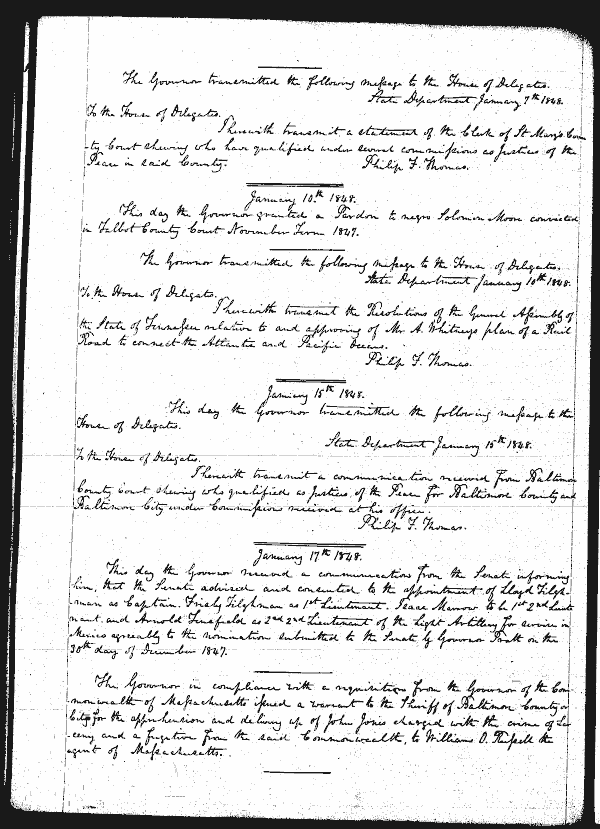 The Governor transmitted the following message to the House of Delegates.
State Department January 7th 1848.
To the House of Delegates.
I herewith transmit a statement of the Clerk of St Mary's Coun
-ty Court shewing who have qualified under several commissions as Justices of the
Peace in said County. Philip F. Thomas.
January 10th 1848.
This day the Governor granted a Pardon to negro Solomon Moore convicted
in Talbot County Court November Term 1847.
The Governor transmitted the following message to the House of Delegates.
State Department January 10th 1848.
To the House of Delegates.
I herewith transmit the Resolutions of the General Assembly of
the State of Tennessee relation to and approving of Mr. A. Whitneys plan of a Rail
Road to connect the Atlantic and Pacific Oceans.
Philip F. Thomas.
January 15th 1848.
This day the Governor transmitted the following message to the
House of Delegates.
State Department January 15th 1848.
To the House of Delegates.
I herewith transmit a communication received from Baltimore
County Court shewing who qualified as Justices of the Peace for Baltimore County and
Baltimore City under Commissions received at his office.
Philip F. Thomas.
January 17th 1848.
This day the Governor received a communication from the Senate informing
him, that the Senate advised and consented to the appointment of Lloyd Tilgh-
-man as Captain. Frisby Tilghman as 1st Lieutenant. Isaac Marrow to be 1st 2nd Lieute
nant and Arnold as 2nd 2nd Lieutenant of the Light Artillery for service in
Mexico agreeably to the nomination submitted to the Senate by Governor Pratt on the
30th day of December 1847.
The Governor in compliance with a requisition from the Governor of the Com-
monwealth of Massachusetts issued a warrant to the Sheriff of Baltimore County or
City for the apprehension and delivery up of John Jones charged with the crime of Lar
-ceny and a fugitive from the said Commonwealth, to William O. Russell the
agent of Massachusetts.